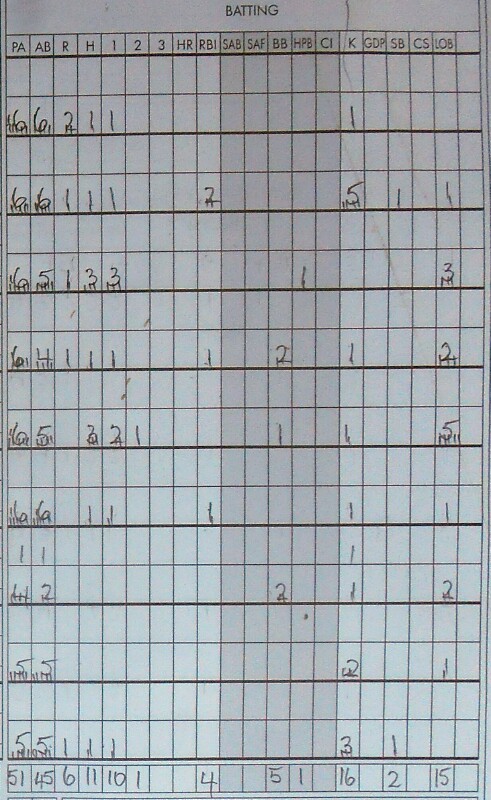 BATTING
PA AB R H 1 2 3 HR RBI SAB SAF BB HPB CI K GDP SB CS LOB
6 6 2 1 1 1
6 6 1 1 1 2 5 1 1
6 5 1 3 3 1 3
6 4 1 1 1 1 2 1 2
6 5 3 2 1 1 1 5
6 6 1 1 1 1 1
1 1 1
4 2 2 1 2
5 5 2 1
5 5 1 1 1 3 1
51 45 6 11 10 1 4 5 1 16 2 15